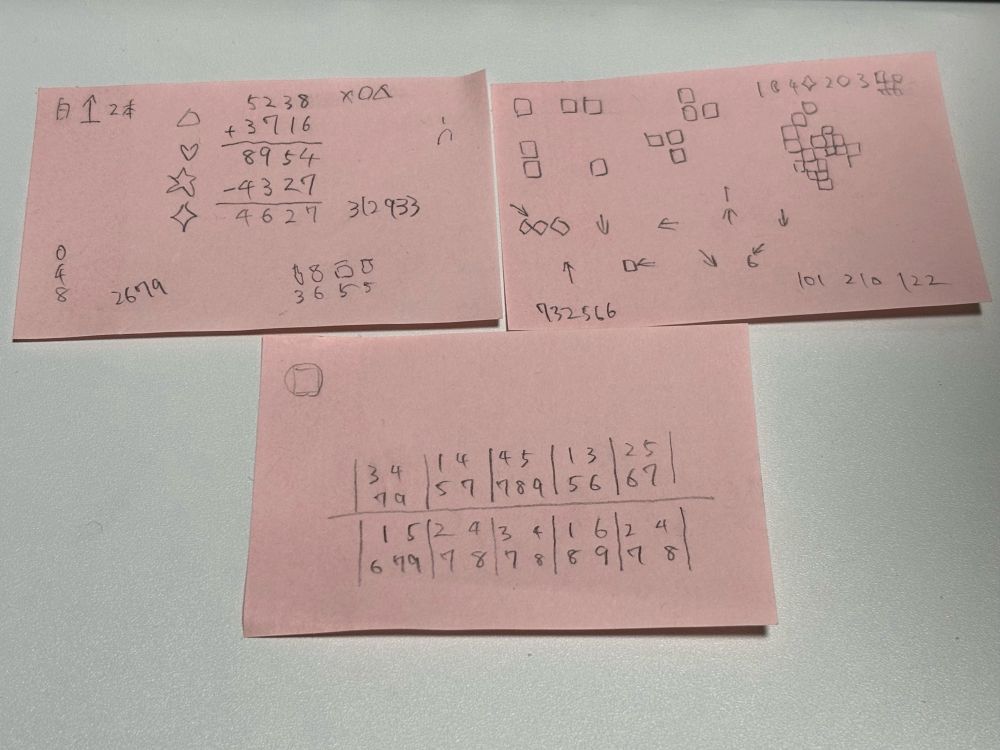 白 ↑ 2本
5238
×○△
+3716
8954
-4327
4627
312933
0
4
8
2679
3 6 5 5
184✧203
732566
101 210 122
3 4 | 1 4 | 4 5 | 1 3 | 2 5
7 9 | 5 7 | 7 8 9 | 5 6 | 6 7
1 5 | 2 4 | 3 4 | 1 6 | 2 4
6 7 9 | 7 8 | 7 8 | 8 9 | 7 8